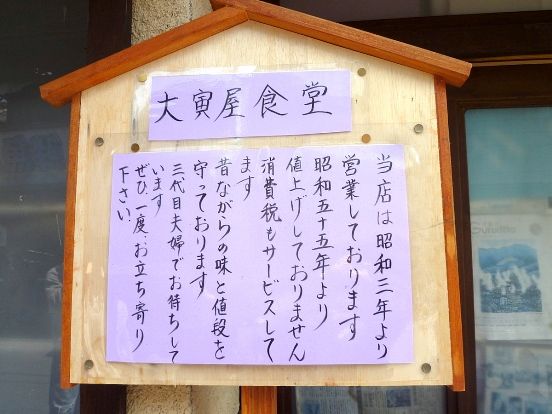 大寅屋食堂
当店は昭和三年より
営業しております
昭和五十五年より
値上げしておりません
消費税もサービスして
ます
昔ながらの味と値段を
守っております
三代目夫婦でお待ちして
います
ぜひ一度、お立ち寄り
下さい